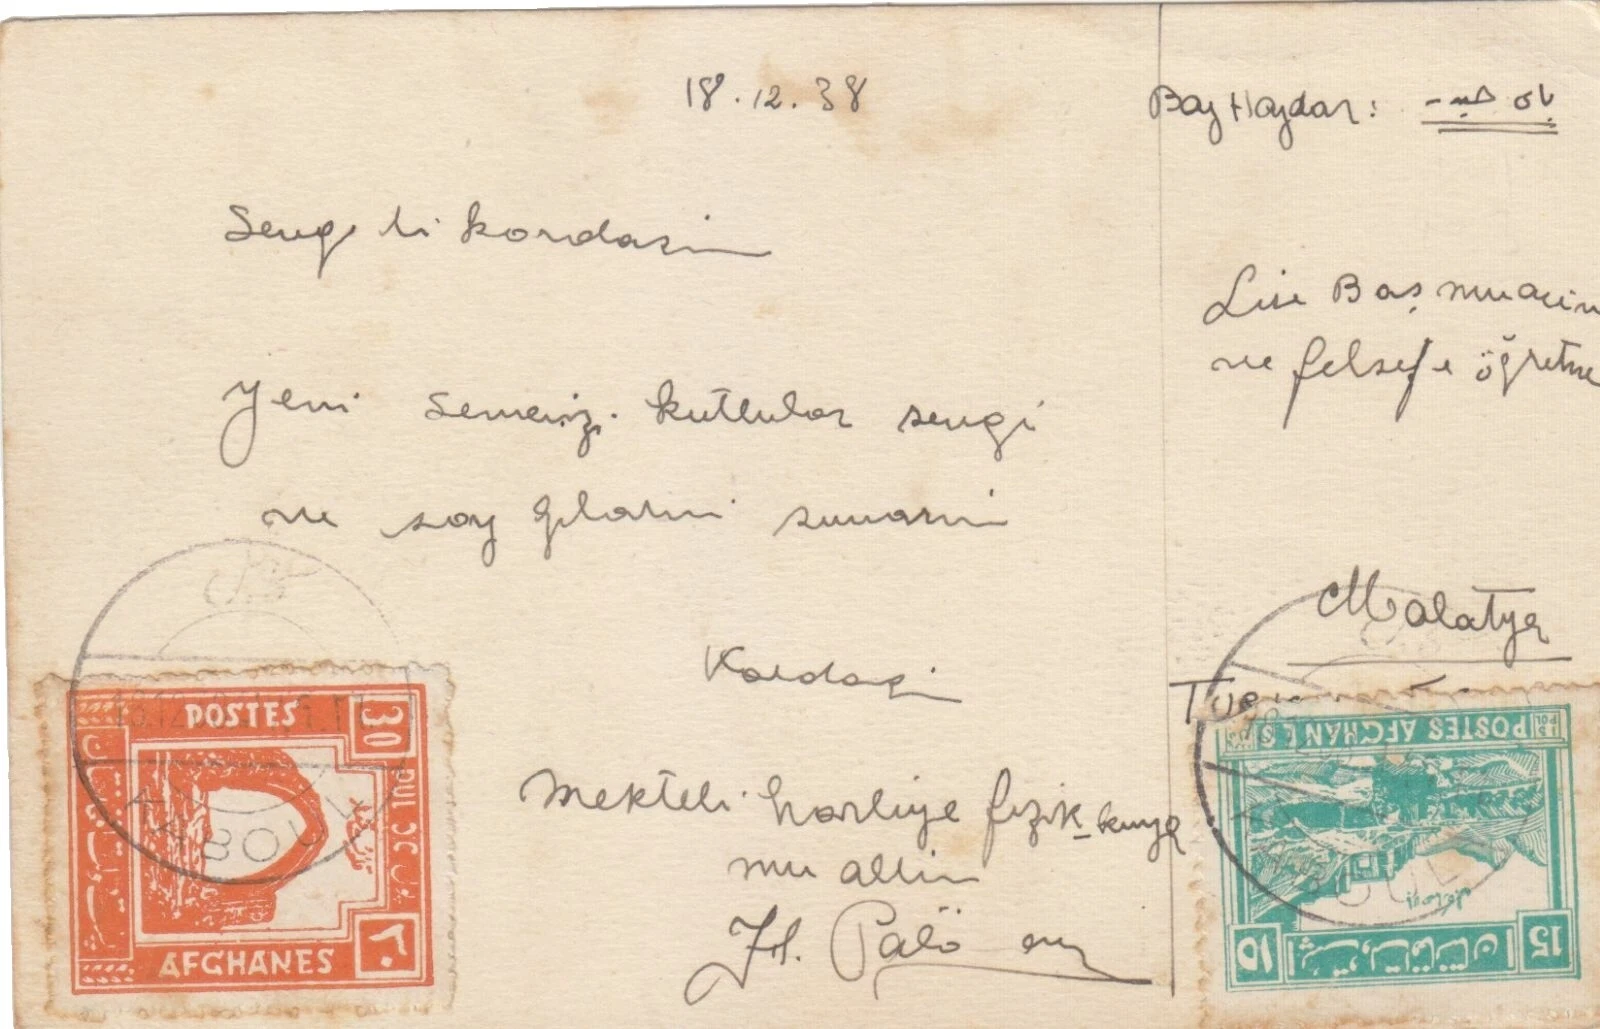 18.12.38
Sevgili kardaşim
Yeni seneniz. kutlular sevgi
ve saygılarmi sunarım
Kardaşi
Mektebi harbiye fizik-kimya
muallim
Bay Haydar:
Lise Baş muavin
ve felsefe öğretme
Malatya
POSTES
30
POUL
AFGHANES
٣٠
KABOUL
POSTES AFGHANES
15
POL
15
١٥